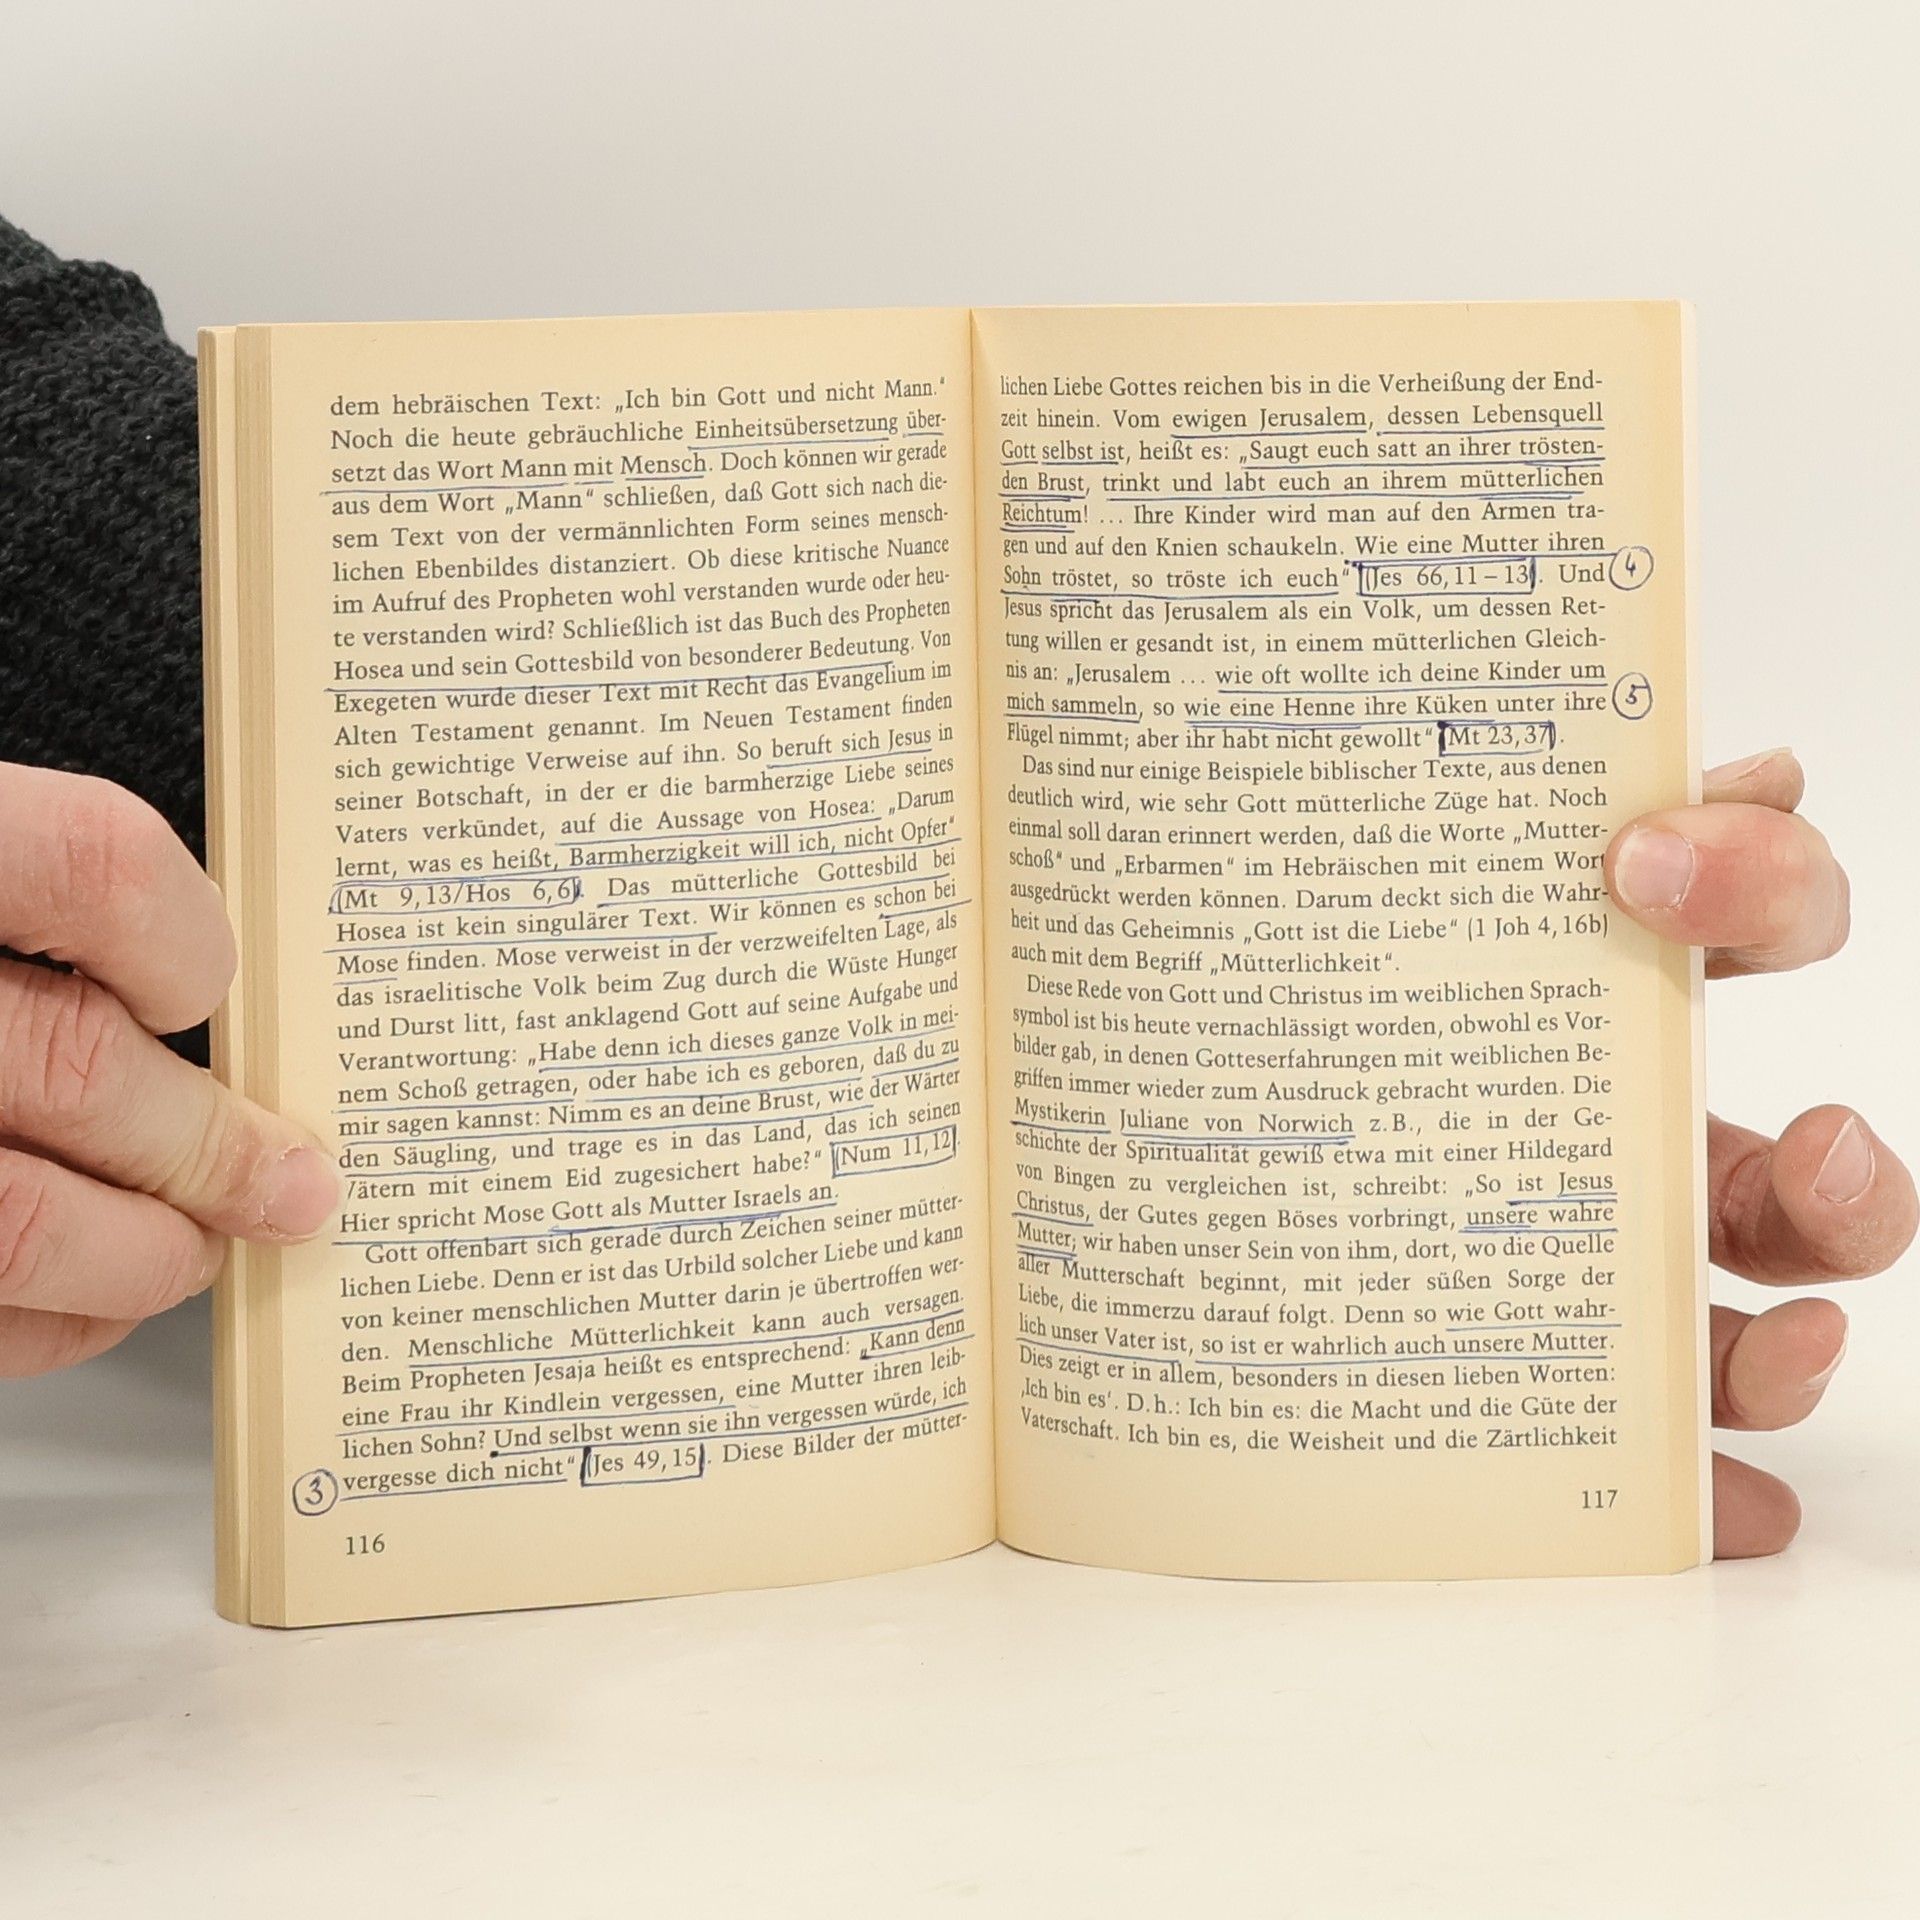 dem hebräischen Text: „Ich bin Gott und nicht Mann.“
Noch die heute gebräuchliche Einheitsübersetzung über-
setzt das Wort Mann mit Mensch. Doch können wir gerade
aus dem Wort „Mann“ schließen, daß Gott sich nach die-
sem Text von der vermännlichten Form seines mensch-
lichen Ebenbildes distanziert. Ob diese kritische Nuance
im Aufruf des Propheten wohl verstanden wurde oder heu-
te verstanden wird? Schließlich ist das Buch des Propheten
Hosea und sein Gottesbild von besonderer Bedeutung. Von
Exegeten wurde dieser Text mit Recht das Evangelium im
Alten Testament genannt. Im Neuen Testament finden
sich gewichtige Verweise auf ihn. So beruft sich Jesus in
seiner Botschaft, in der er die barmherzige Liebe seines
Vaters verkündet, auf die Aussage von Hosea: „Darum
lernt, was es heißt, Barmherzigkeit will ich, nicht Opfer“
(Mt 9,13/Hos 6,6). Das mütterliche Gottesbild bei
Hosea ist kein singulärer Text. Wir können es schon bei
Mose finden. Mose verweist in der verzweifelten Lage, als
das israelitische Volk beim Zug durch die Wüste Hunger
und Durst litt, fast anklagend Gott auf seine Aufgabe und
Verantwortung: „Habe denn ich dieses ganze Volk in mei-
nem Schoß getragen, oder habe ich es geboren, daß du zu
mir sagen kannst: Nimm es an deine Brust, wie der Wärter
den Säugling, und trage es in das Land, das ich seinen
Vätern mit einem Eid zugesichert habe?“ (Num 11,12).
Hier spricht Mose Gott als Mutter Israels an.
Gott offenbart sich gerade durch Zeichen seiner mütter-
lichen Liebe. Denn er ist das Urbild solcher Liebe und kann
von keiner menschlichen Mutter darin je übertroffen wer-
den. Menschliche Mütterlichkeit kann auch versagen.
Beim Propheten Jesaja heißt es entsprechend: „Kann denn
eine Frau ihr Kindlein vergessen, eine Mutter ihren leib-
lichen Sohn? Und selbst wenn sie ihn vergessen würde, ich
3 vergesse dich nicht“ (Jes 49,15). Diese Bilder der mütter-
116
lichen Liebe Gottes reichen bis in die Verheißung der End-
zeit hinein. Vom ewigen Jerusalem, dessen Lebensquell
Gott selbst ist, heißt es: „Saugt euch satt an ihrer trösten-
den Brust, trinkt und labt euch an ihrem mütterlichen
Reichtum! ... Ihre Kinder wird man auf den Armen tra-
gen und auf den Knien schaukeln. Wie eine Mutter ihren
Sohn tröstet, so tröste ich euch“ (Jes 66,11–13). Und 4
Jesus spricht das Jerusalem als ein Volk, um dessen Ret-
tung willen er gesandt ist, in einem mütterlichen Gleich-
nis an: „Jerusalem ... wie oft wollte ich deine Kinder um
mich sammeln, so wie eine Henne ihre Küken unter ihre 5
Flügel nimmt; aber ihr habt nicht gewollt“ (Mt 23,37).
Das sind nur einige Beispiele biblischer Texte, aus denen
deutlich wird, wie sehr Gott mütterliche Züge hat. Noch
einmal soll daran erinnert werden, daß die Worte „Mutter-
schoß“ und „Erbarmen“ im Hebräischen mit einem Wort
ausgedrückt werden können. Darum deckt sich die Wahr-
heit und das Geheimnis „Gott ist die Liebe“ (1 Joh 4,16b)
auch mit dem Begriff „Mütterlichkeit“.
Diese Rede von Gott und Christus im weiblichen Sprach-
symbol ist bis heute vernachlässigt worden, obwohl es Vor-
bilder gab, in denen Gotteserfahrungen mit weiblichen Be-
griffen immer wieder zum Ausdruck gebracht wurden. Die
Mystikerin Juliane von Norwich z.B., die in der Ge-
schichte der Spiritualität gewiß etwa mit einer Hildegard
von Bingen zu vergleichen ist, schreibt: „So ist Jesus
Christus, der Gutes gegen Böses vorbringt, unsere wahre
Mutter; wir haben unser Sein von ihm, dort, wo die Quelle
aller Mutterschaft beginnt, mit jeder süßen Sorge der
Liebe, die immerzu darauf folgt. Denn so wie Gott wahr-
lich unser Vater ist, so ist er wahrlich auch unsere Mutter.
Dies zeigt er in allem, besonders in diesen lieben Worten:
‚Ich bin es‘. D.h.: Ich bin es: die Macht und die Güte der
Vaterschaft. Ich bin es, die Weisheit und die Zärtlichkeit
117